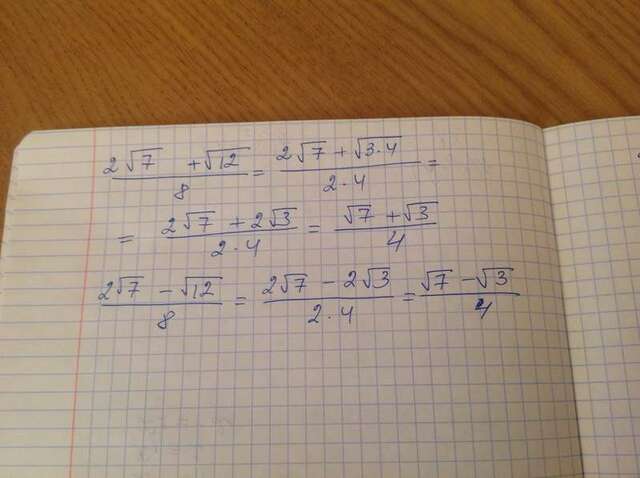 (2√7 + √12)/8 = (2√7 + √(3·4))/(2·4) =
= (2√7 + 2√3)/(2·4) = (√7 + √3)/4
(2√7 − √12)/8 = (2√7 − 2√3)/(2·4) = (√7 − √3)/4